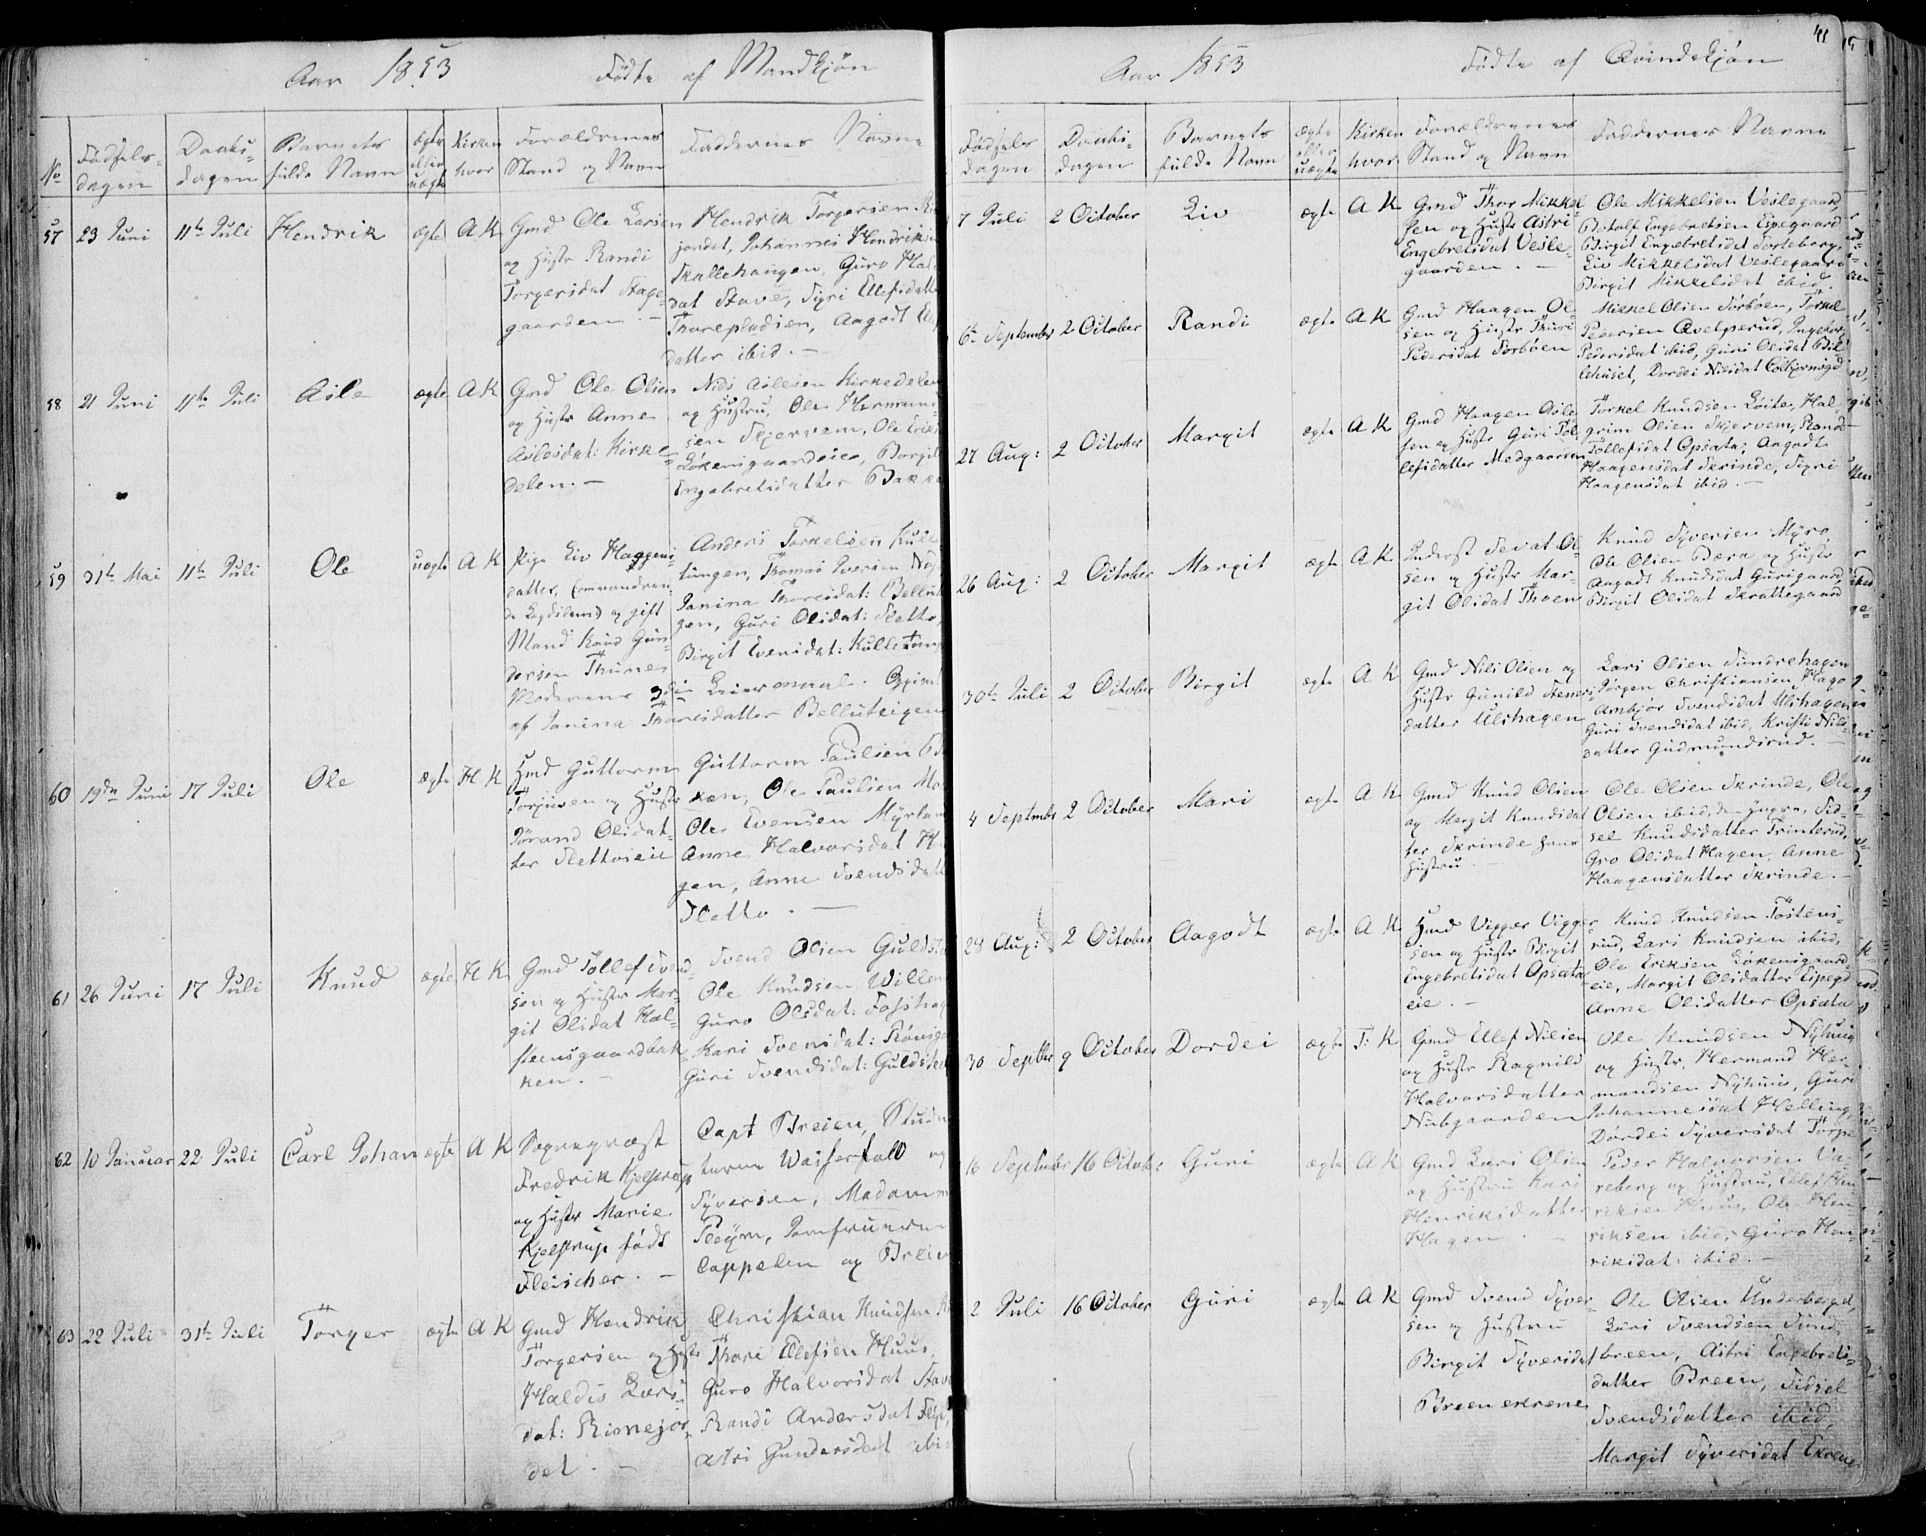 Aar 1853 Fødte af Mandkjøn
No
Fødsels-
dagen
Daabs-
dagen
Barnets
fulde Navn
ægte
eller
uægte
Kirken
hvor
Forældrenes
Stand og Navn
Faddernes Navne
57 23 Juni 11te Juli Hendrik ægte A K
Gmd Ole Larsen
og Hustr Randi
Torgersdat Stage-
gaarden. —
Hendrik Torgersen
jordet, Johannes Hendriksen
Skallehaugen, Guro Hal-
dat Stave, Sigri Ellefsdatter
Thorepladsen, Aagodt
datter ibid. —
58 21 Juni 11te Juli Asle ægte A K
Gmd Ole Olsen
og Hustr Anne
Aslesdat: Kirke-
delen. —
Nils Aslesen Kirkedelen
og Hustru, Ole Hermund-
sen Skjervem, Ole Eriks
Løkensgaardseie, Borgil
Engebretsdatter Bakke
59 31te Mai 11te Juli Ole uægte A K
Pige Liv Haagens-
datter, (omvandren-
de Lægdslem) og gift
Mand Knud Gun-
dersen Thune
Moderens 3die Leiermaal. Opgivet
af Janina Thoresdatter Belluteigen
Anders Torkelsen Kull-
tungen, Thomas Iversen
Janina Thoresdat: Bellut
gen, Guri Olsdat: Sletto,
Birgit Evensdat: Kulletun
60 19de Juni 17 Juli Ole ægte H K
Hmd Guttorm
Torjusen og Hustr
Jørand Olsdat-
ter Slettoeie
Guttorm Paulsen
ken, Ole Paulsen
Ole Evensen Myrlan
Anne Halvorsdat
gen, Anne Svendsdat
Sletto. —
61 26 Juni 17 Juli Knud ægte H K
Gmd Tollef Svend-
sen og Hustr Mar-
git Olsdat Hal-
steensgaardbak
ken. —
Svend Olsen Gulds
Ole Knudsen Willen
Guro Olsdat: Fosshag
Kari Svensdat: Rønsg
Guri Svendsdat: Guldsteen
62 10 Januar 22 Juli Carl Johan ægte A K
Sognepræst
Fredrik Kjelstrup
og Hustr Marie
Kjelstrup født
Fleischer. —
Capt Breien, Stud
Wasserfald og
Syversen, Madamm
Pleÿm, Jomfruerne
Cappelen og Breien
63 22 Juli 31te Juli Torger ægte A K
Gmd Hendrik
Torgersen og Hustr
Haldis Lars-
dat: Rimejor-
det. —
Christian Knudsen
Thore Ellefsen Huus,
Guro Halvorsdat Stave
Randi Andersdat
Astri Gundersdat ibid
41
Aar 1853 Fødte af Qvindekjøn
Fødsels
dagen
Daabs-
dagen
Barnets
fulde Navn
ægte
eller
uægte
Kirken
hvor
Forældrenes
Stand og Navn
Faddernes Navne
7 Juli 2 October Liv ægte A K
Gmd Thor Mikkel-
sen og Hustr Astri
Engebretsdat Vesle-
gaarden. —
Ole Mikkelsen Veslegaard,
Botolf Engebretsen Espegaard
Birgit Engebretsdat Torteberg,
Liv Mikkelsdat Veslegaard
Birgit Mikkelsdat ibid.
6te September 2 October Randi ægte A K
Gmd Haagen Ol-
sen og Hustr Thuri
Pedersdat Torbøen
Mikkel Olsen Torbøen, Torkel
Pedersen Qvelprud, Ingebor
Pedersdat ibid, Guri Olsdat Bik-
lehuset, Dordei Nilsdat
27 Aug: 2 October Margit ægte A K
Gmd Haagen Asle-
sen og Hustr Guri Tol-
lefsdatter Medgaarden
Torkel Knudsen Loite, Hal-
grim Olsen Skjervem, Randi
Tollefsdat Opsata, Aagodt
Haagensdat Skrinde, Sigri
Haagensdat ibid. —
26 Aug: 2 October Margit ægte A K
Inderst Sevat Ol-
sen og Hustr Mar-
git Olsdat Thoen
Knud Syversen Myro,
Ole Olsen Bera og Hustr
Aagodt Knudsdat Gurigaard,
Birgit Olsdat Skrattegaard
30te Juli 2 October Birgit ægte A K
Gmd Nils Olsen og
Hustr Gunild Steners
datter Ulshagen
Lars Olsen Sundrehagen
Jørgen Christiansen Hago
Ambjør Svendsdat Ulshagen
Guri Svendsdat ibid, Kristi Nils-
datter Gudmundsrud. —
4 September 2 October Mari ægte A K
Gmd Knud Olsen
og Margit Knudsdat
ter Skrinde hans
Hustru
Ole Olsen Skrinde, Ole
Olsen ibid, den Yngre, Sid-
sel Knudsdatter Trinterud,
Gro Olsdat Hagen, Anne
Haagensdatter Skrinde. —
28 Aug: 2 October Aagodt ægte A K
Hmd Vigger Vigger-
sen og Hustr Birgit
Engebretsdat Opsata-
eie. —
Knud Knudsen Tøstens-
rud, Lars Knudsen ibid,
Ole Eriksen Løkensgaard
eie, Margit Olsdatter Espegd
Anne Olsdatter Opsata
30 Septbr 9 October Dordei ægte T: K
Gmd Ellef Nilsen
og Hustr Ragnild
Halvorsdatter
Nubgaarden
Ole Knudsen Nyhuus
og Hustr, Hermand Her-
mandsen Nyhuus, Guri
Johannesdat Helling
Dordei Syversdat Torpe
16 September 16 October Guri ægte A K
Gmd Lars Olsen
og Hustru Kari
Henriksdatter
Hagen. —
Peder Halvorsen Va-
reberg og Hustru, Ellef Hen-
riksen Huus, Ole Hen-
riksen ibid, Guro Hen-
riksdat: ibid. —
2 Juli 16 October Guri ægte A K
Gmd Svend Syver-
sen og Hustru
Birgit Syversdat
Breenekrene
Ole Olsen Underberget,
Lars Svendsen Sund-
breen, Astri Engebrets-
datter Breen, Sidsel
Svendsdatter ibid,
Margit Syversdat Ekrene